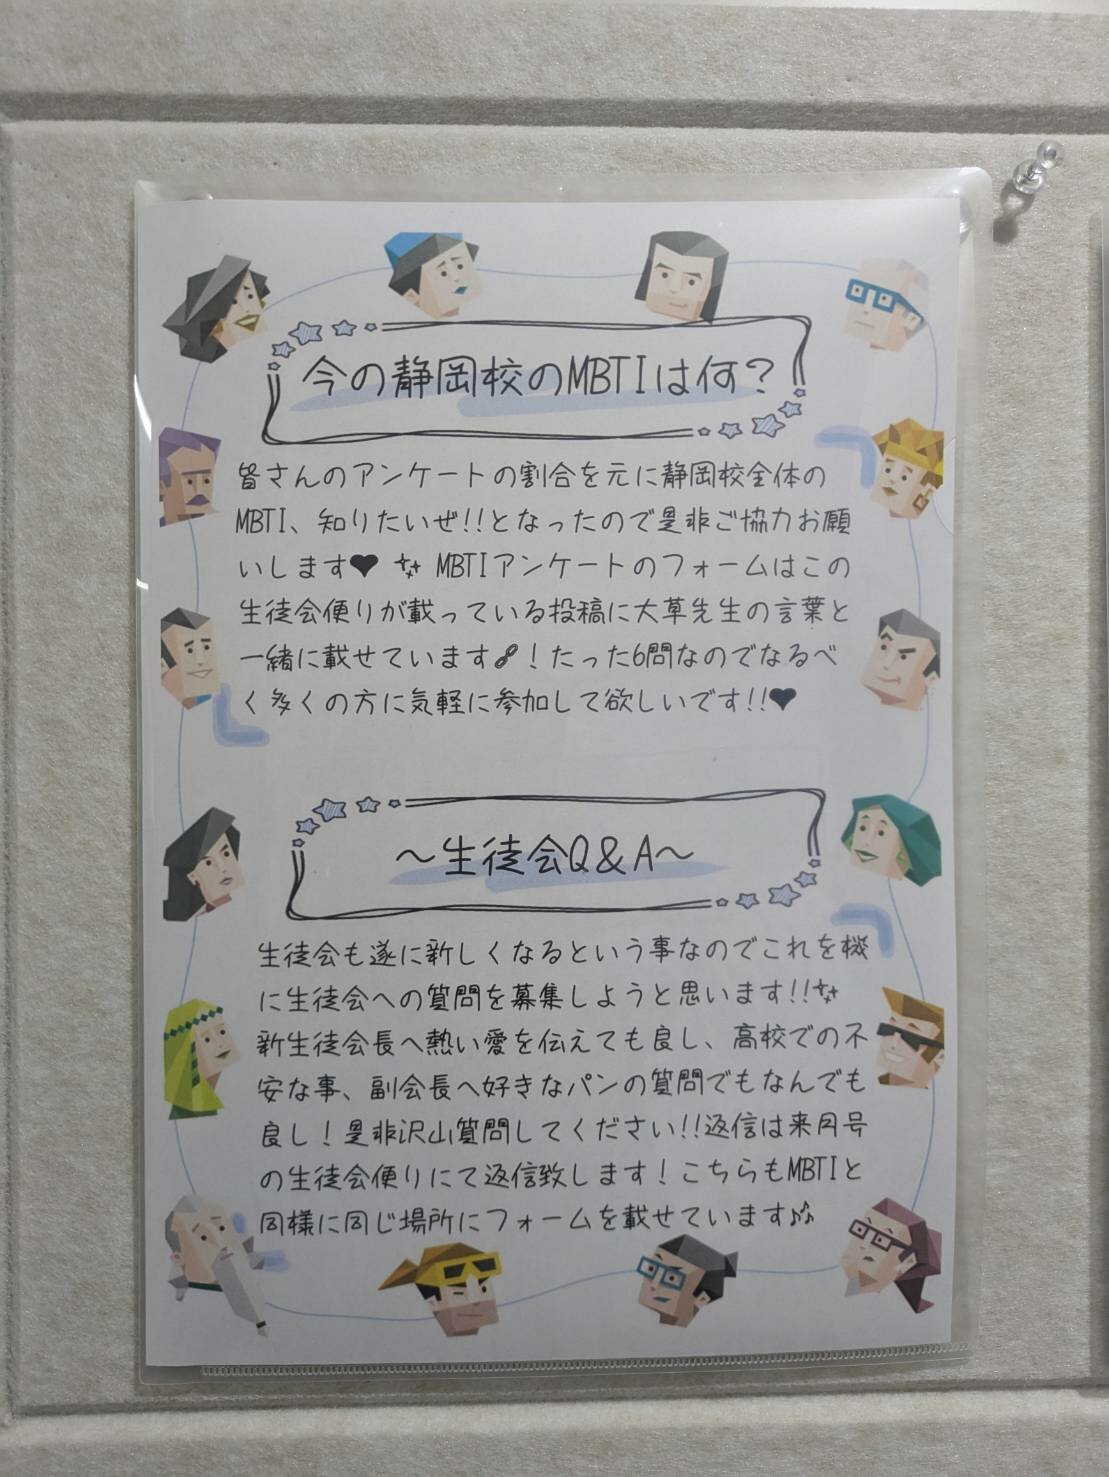 今の静岡校のMBTIは何?
皆さんのアンケートの割合を元に静岡校全体の
MBTI、知りたいぜ!!となったので是非ご協力お願
いします♥ ✨ MBTIアンケートのフォームはこの
生徒会便りが載っている投稿に大草先生の言葉と
一緒に載せています🔗!たった6問なのでなるべ
く多くの方に気軽に参加して欲しいです!!♥
～生徒会Q&A～
生徒会も遂に新しくなるという事なのでこれを機
に生徒会への質問を募集しようと思います!!✨
新生徒会長へ熱い愛を伝えても良し、高校での不
安な事、副会長へ好きなパンの質問でもなんでも
良し!是非沢山質問してください!!返信は来月号
の生徒会便りにて返信致します!こちらもMBTIと
同様に同じ場所にフォームを載せています🎶